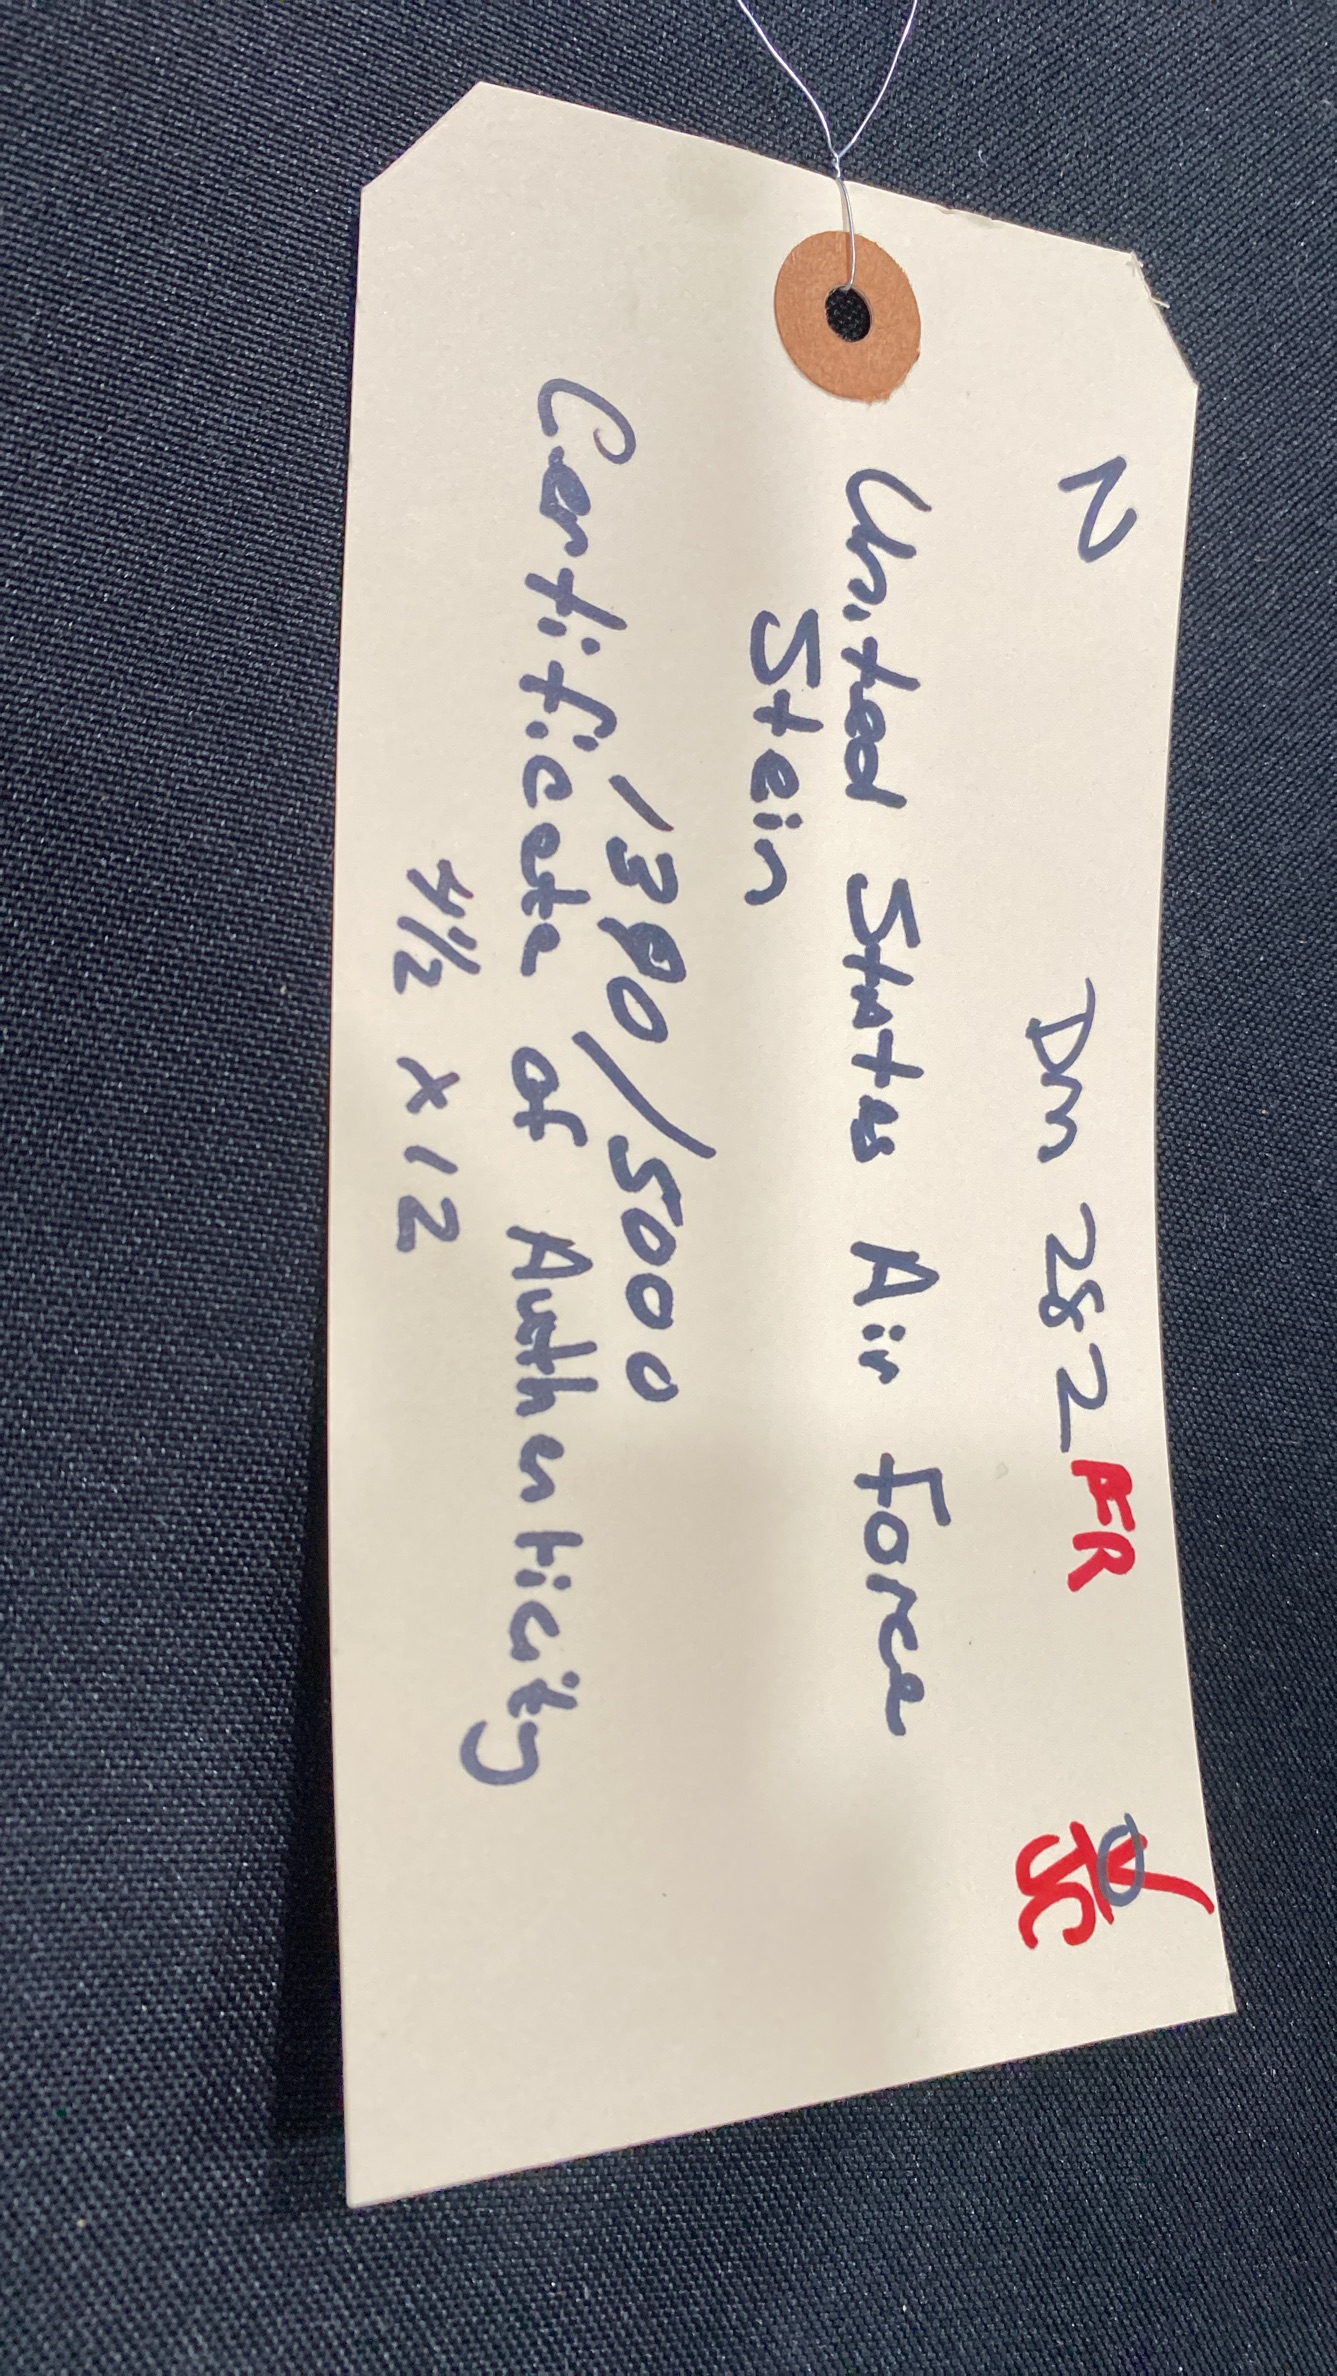 N DM 282 FR JC
United States Air Force
Stein
1390/5000
Certificate of Authenticity
4 1/2 x 12